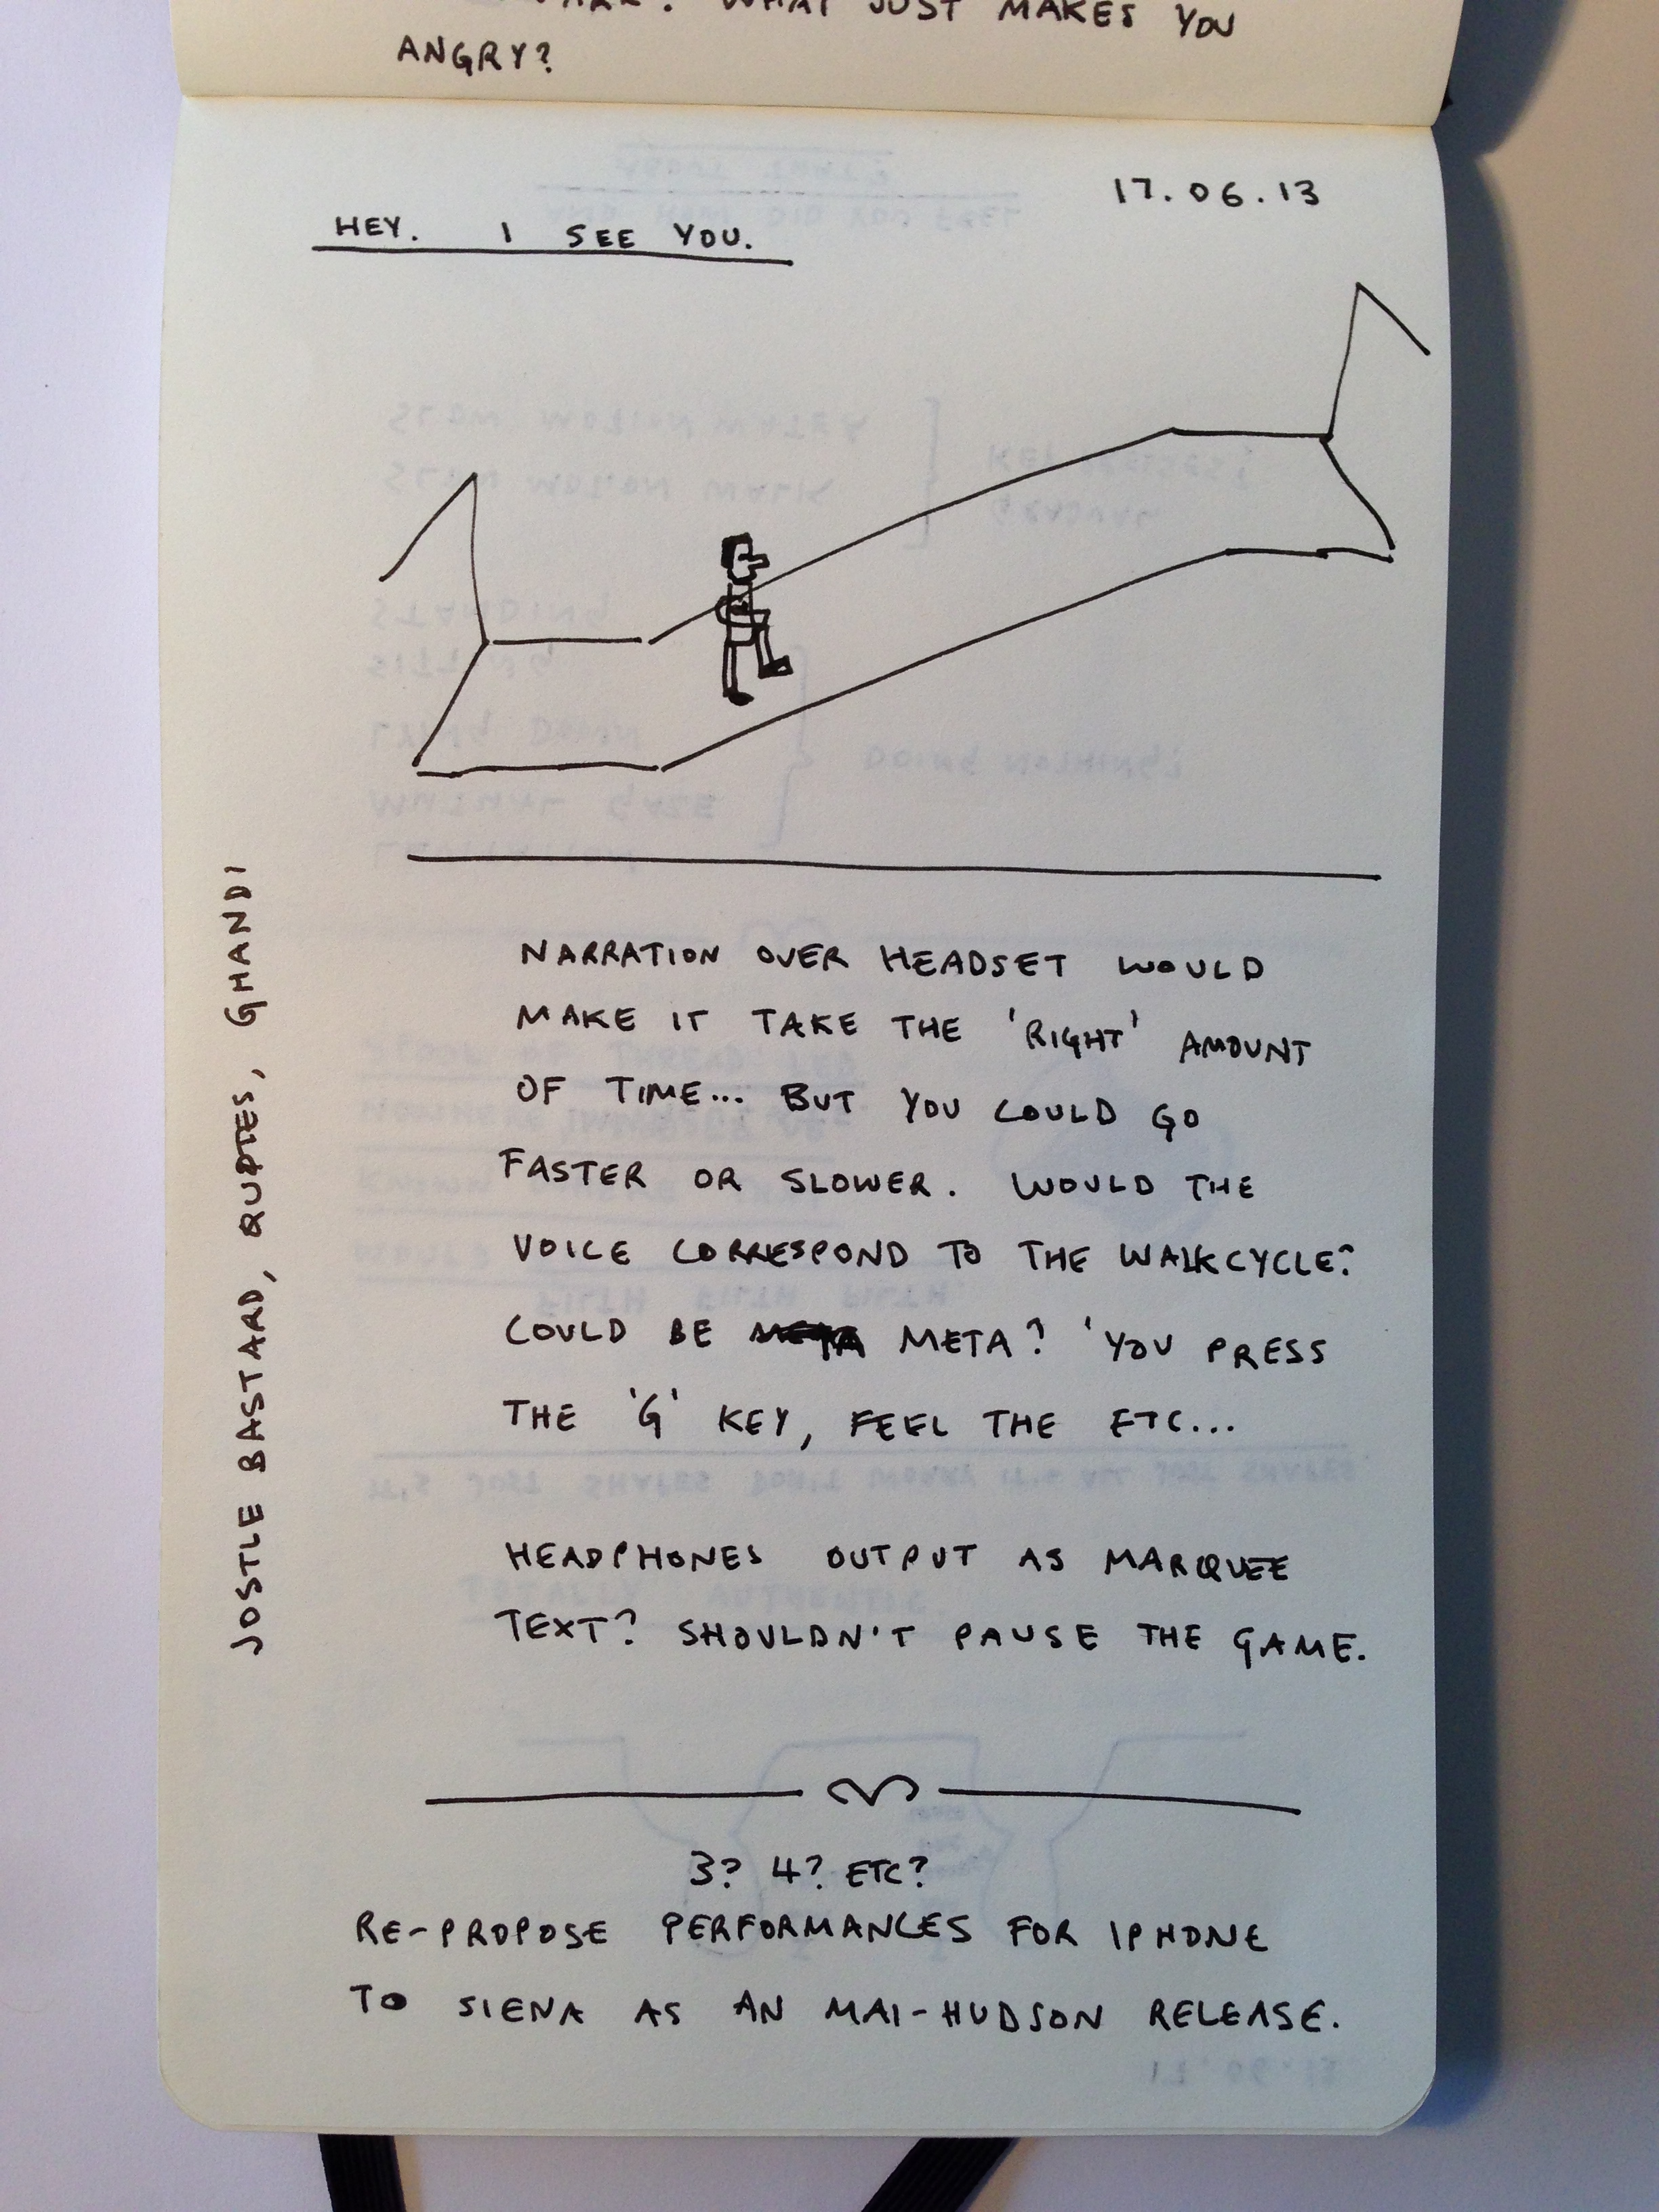 WHAT JUST MAKES YOU
ANGRY?
17.06.13
HEY. I SEE YOU.
NARRATION OVER HEADSET WOULD
MAKE IT TAKE THE 'RIGHT' AMOUNT
OF TIME... BUT YOU COULD GO
FASTER OR SLOWER. WOULD THE
VOICE CORRESPOND TO THE WALKCYCLE?
COULD BE META? 'YOU PRESS
THE 'G' KEY, FEEL THE ETC...
HEADPHONES OUTPUT AS MARQUEE
TEXT? SHOULDN'T PAUSE THE GAME.
JOSTLE BASTARD, QUPTES, GHANDI
3? 4? ETC?
RE-PROPOSE PERFORMANCES FOR IPHONE
TO SIENA AS AN MAI-HUDSON RELEASE.